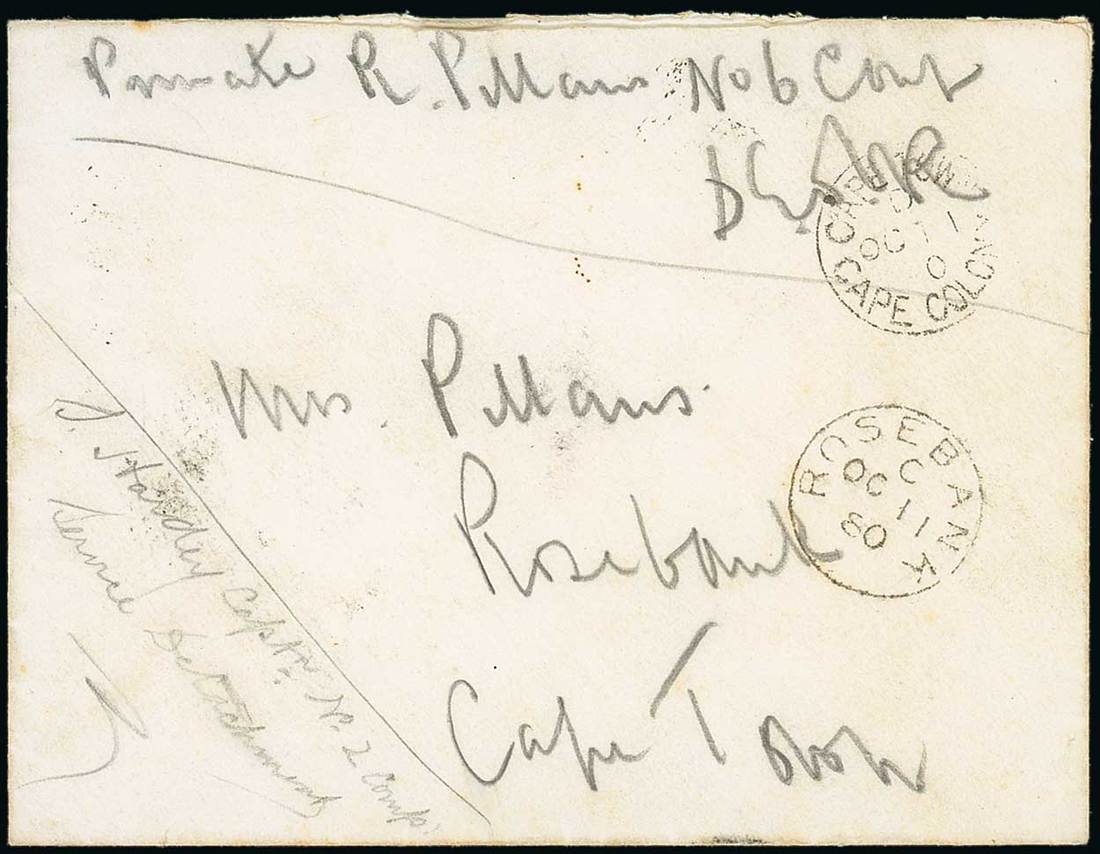 Private R. Pillans No 6 Comp
D E O V R
CAPE TOWN
OCT 1
0
CAPE COLONY
Mrs. Pillans
Rosebank
Cape Town
ROSEBANK
C
OC 11
80
J. Handley Captn No. 2 Comp.
Service Detachment